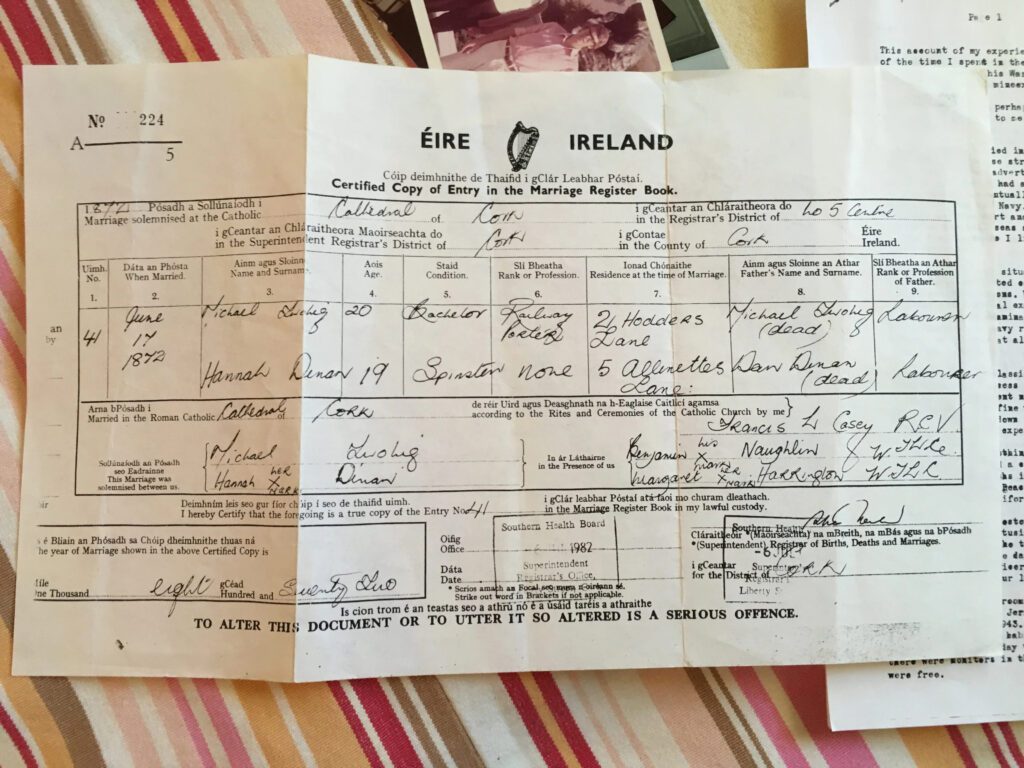 Nº 224
A
5
ÉIRE IRELAND
Cóip deimhnithe de Thaifid i gClár Leabhar Póstaí.
Certified Copy of Entry in the Marriage Register Book.
1872 Pósadh a Sollúnaíodh i
Marriage solemnised at the Catholic Cathedral of Cork
i gCeantar an Chláraitheora do
in the Registrar's District of No 5 Centre
i gCeantar an Chláraitheora Maoirseachta do
in the Superintendent Registrar's District of Cork
i gContae
in the County of Cork
Éire
Ireland.
Uimh. No. Dáta an Phósta When Married. Ainm agus Sloinne Name and Surname. Aois Age. Staid Condition. Slí Bheatha Rank or Profession. Ionad Chónaithe Residence at the time of Marriage. Ainm agus Sloinne an Athar Father's Name and Surname. Slí Bheatha an Athar Rank or Profession of Father.
1. 2. 3. 4. 5. 6. 7. 8. 9.
41 June 17 1872 Michael Twohig 20 Bachelor Railway Porter Hodders Lane Michael Twohig (dead) Labourer
Hannah Dinan 19 Spinster none 5 Lane: Dan Dinan (dead) Labourer
Arna bPósadh i
Married in the Roman Catholic Cathedral CORK
de réir Uird agus Deasghnath na h-Eaglaise Caitlicí agamsa
according to the Rites and Ceremonies of the Catholic Church by me
Francis L Casey R.C.V
Sollúnaíodh an Pósadh seo Eadrainne
This Marriage was solemnised between us.
Michael Twohig
Hannah her X mark Dinan
In ár Láthairne
In the Presence of us
Benjamin his X mark Naughlin
Margaret her X mark Harrington
Deimhním leis seo gur fíor chóip í seo de thaifid uimh.
I hereby Certify that the foregoing is a true copy of the Entry No. 41
i gClár leabhar Pósta atá faoi mo churam dleathach.
in the Marriage Register Book in my lawful custody.
é Bliain an Phósadh sa Chóip dheimhnithe thuas ná
he year of Marriage shown in the above Certified Copy is
Míle
One Thousand eight gCéad
Hundred and Seventy Two
Oifig
Office
Dáta
Date
Southern Health Board
1982
Superintendent
Registrar's Office,
* Scrios amach an Focal
Strike out word in Brackets if not applicable.
Southern Health
Cláraitheoir *(Maoirseachta) na mBreith, na mBás agus na bPósadh
*(Superintendent) Registrar of Births, Deaths and Marriages.
i gCeantar
for the District of CORK
Is cion trom é an teastas seo a athrú nó é a úsáid taréis a athraithe
TO ALTER THIS DOCUMENT OR TO UTTER IT SO ALTERED IS A SERIOUS OFFENCE.
an
by
Page 1
This account of my experie
of the time I spent in the
his Wa
perha
to se
there were monitors in th
were free.